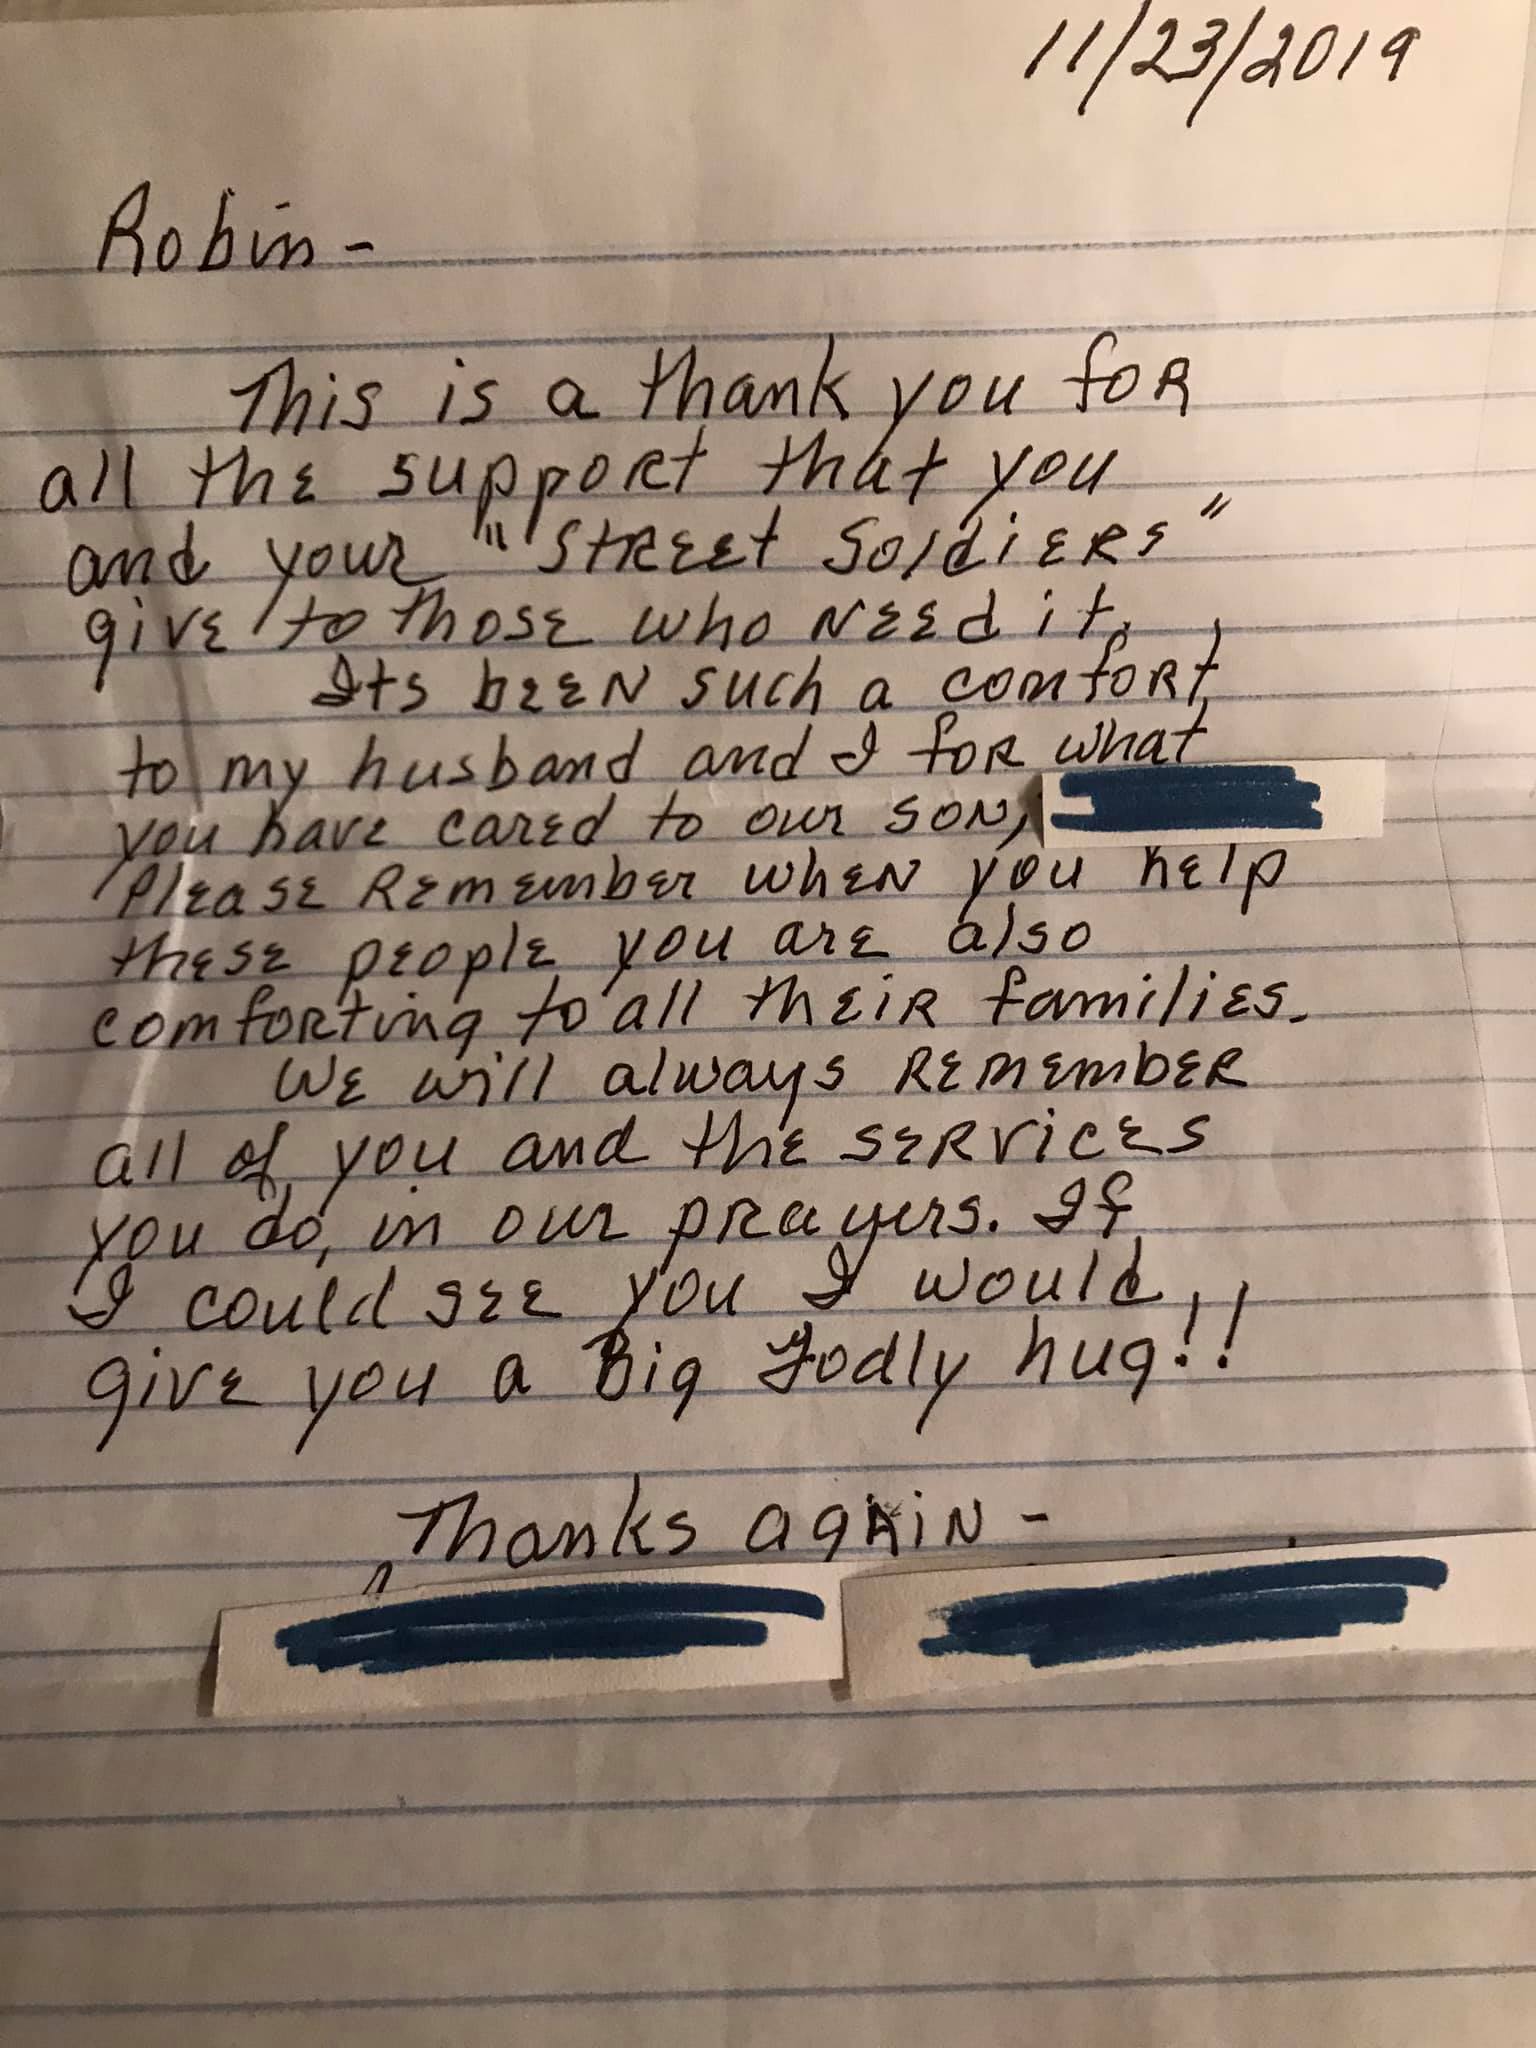 11/23/2019
Robin -
This is a thank you for
all the support that you
and your "Street Soldiers"
give to those who need it.
Its been such a comfort
to my husband and I for what
you have cared to our son,
Please Remember when you help
these people you are also
comforting to all their families.
We will always remember
all of you and the services
you do, in our prayers. If
I could see you I would
give you a Big Godly hug!!
Thanks again -